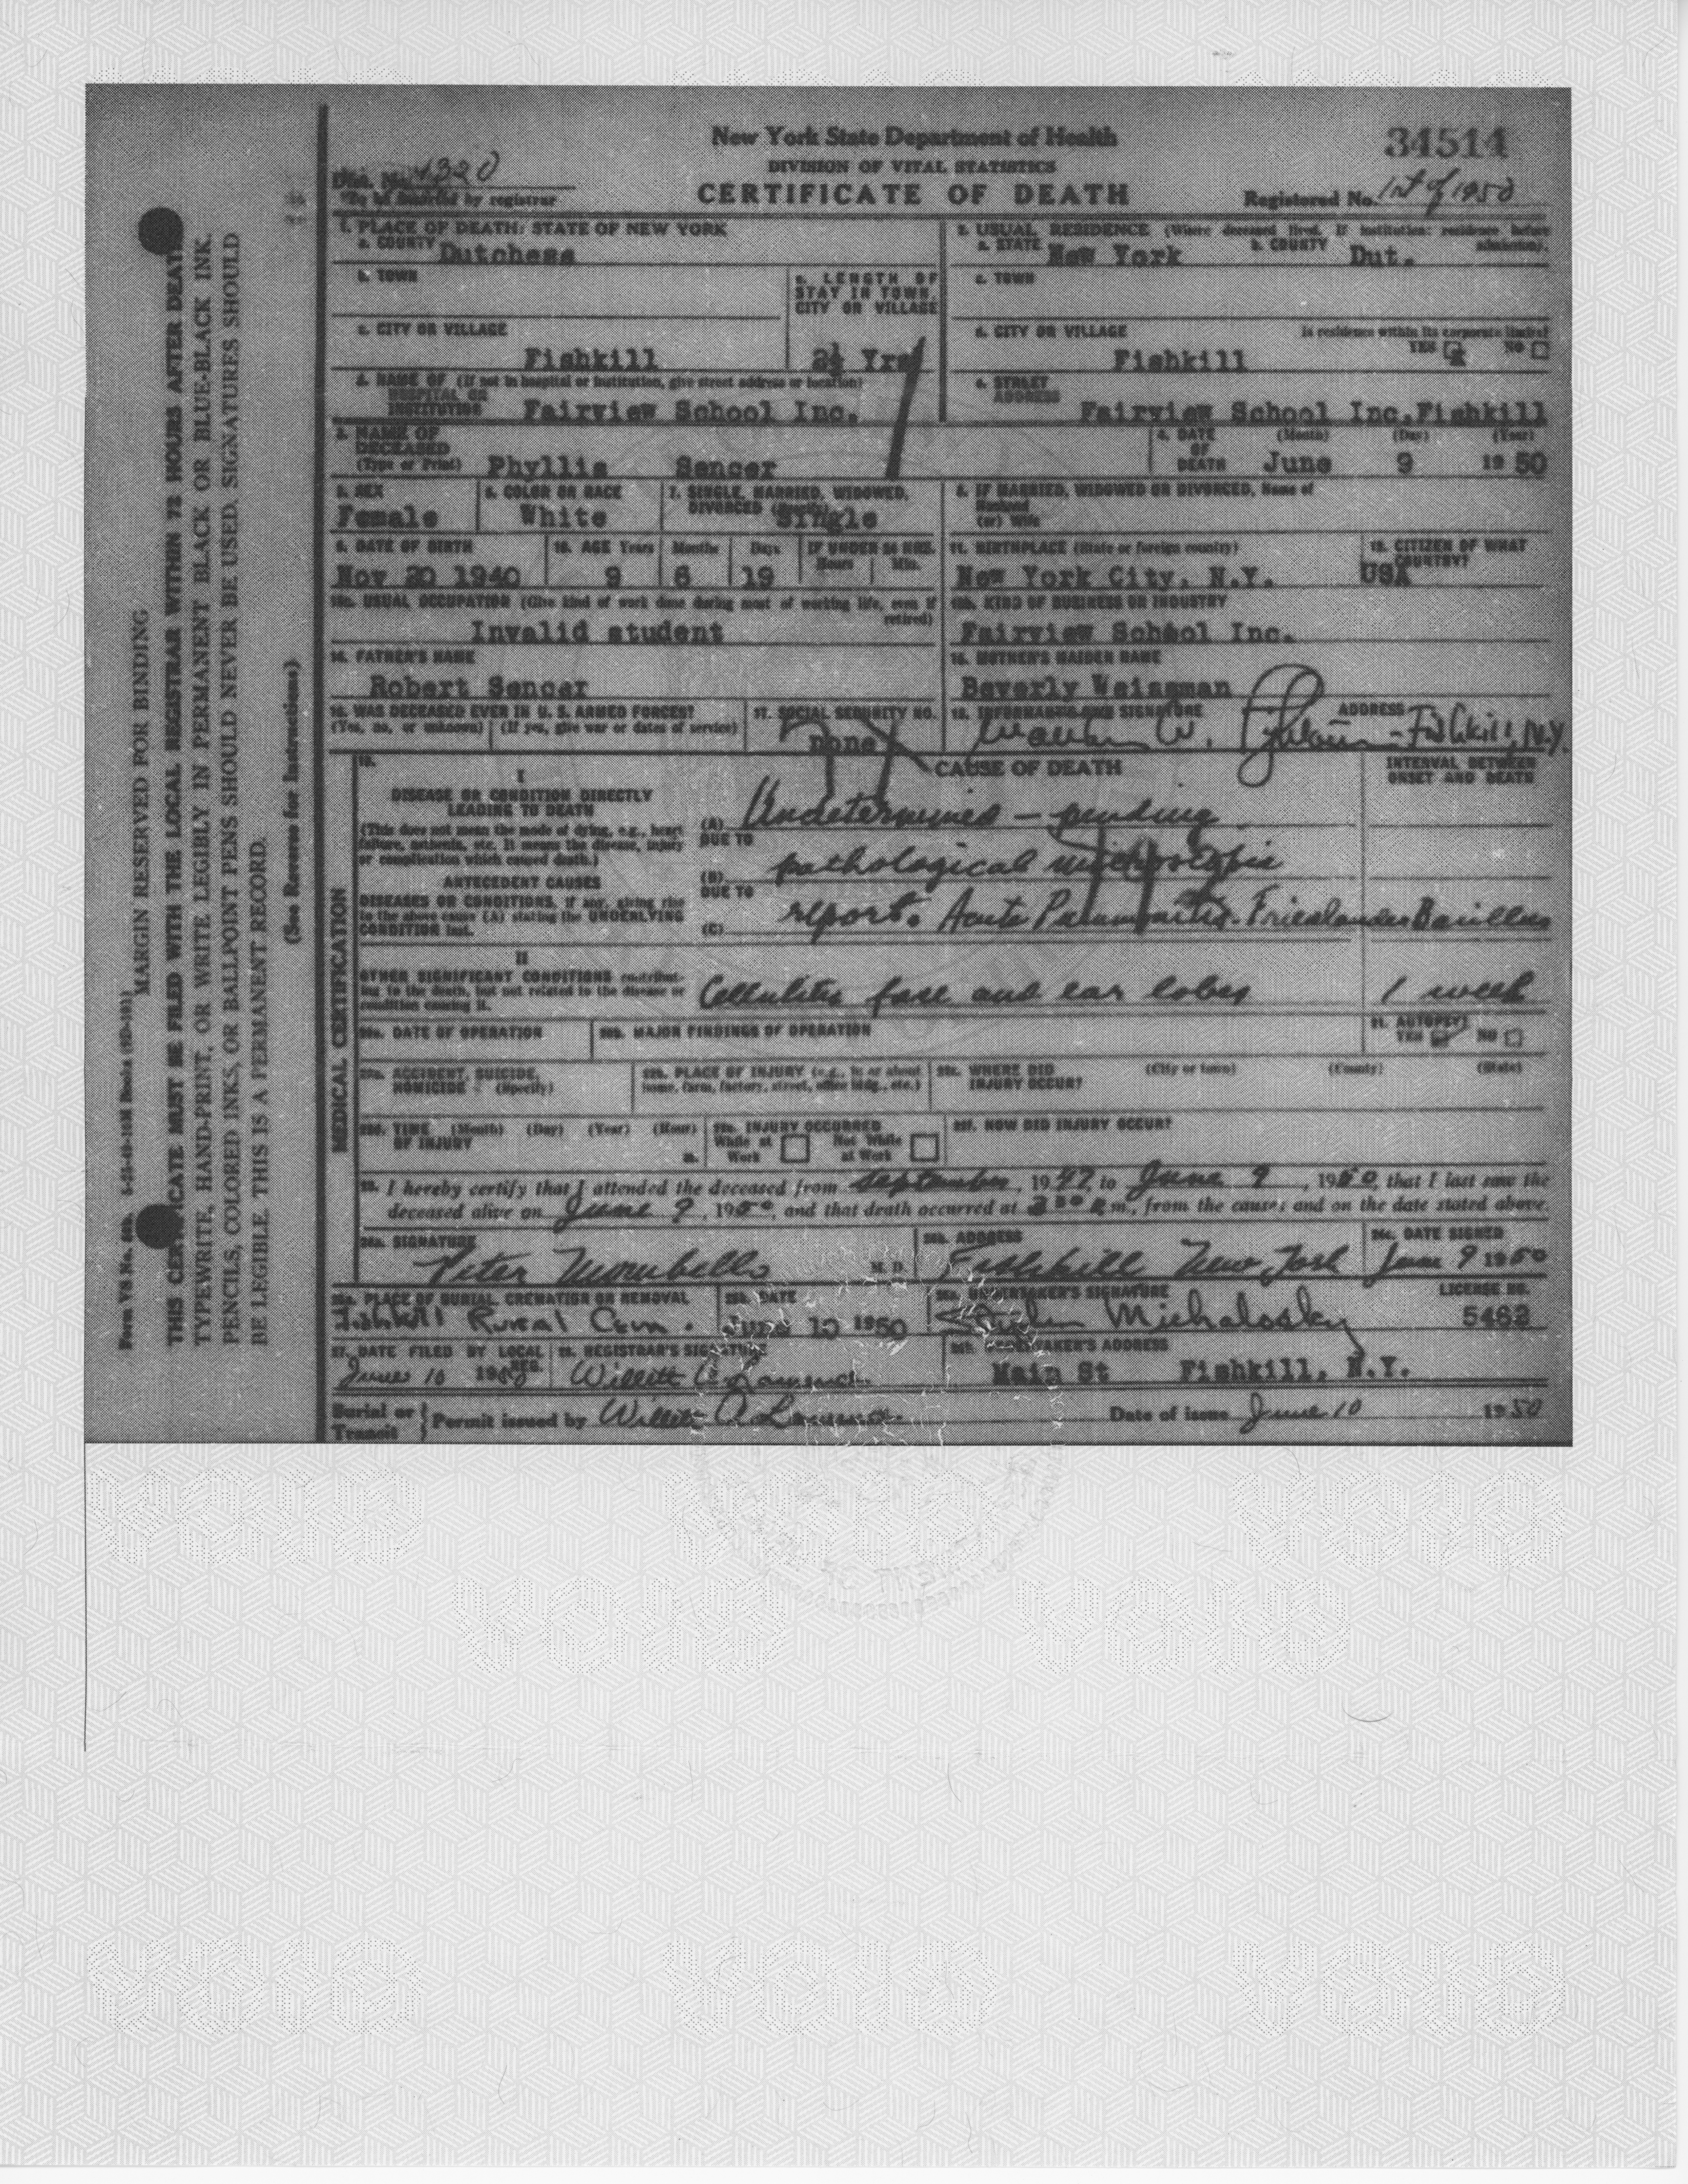 New York State Department of Health
34514
DIVISION OF VITAL STATISTICS
Dist. No. 1320
To be inserted by registrar
CERTIFICATE OF DEATH
Registered No. 1st of 1950
1. PLACE OF DEATH: STATE OF NEW YORK
a. COUNTY Dutchess
2. USUAL RESIDENCE (Where deceased lived. If institution: residence before admission).
a. STATE New York b. COUNTY Dut.
b. TOWN
c. LENGTH OF STAY IN TOWN, CITY OR VILLAGE
2½ Yrs
c. TOWN
c. CITY OR VILLAGE
Fishkill
d. CITY OR VILLAGE
Fishkill
Is residence within its corporate limits?
YES NO
d. NAME OF (If not in hospital or institution, give street address or location)
HOSPITAL OR INSTITUTION Fairview School Inc.
e. STREET ADDRESS
Fairview School Inc,Fishkill
3. NAME OF DECEASED
(Type or Print) Phyllis Sencer
4. DATE OF DEATH (Month) (Day) (Year)
June 9 19 50
5. SEX
Female
6. COLOR OR RACE
White
7. SINGLE, MARRIED, WIDOWED, DIVORCED (Specify)
Single
8. IF MARRIED, WIDOWED OR DIVORCED, Name of
Husband
(or) Wife
9. DATE OF BIRTH
Nov 20 1940
10. AGE Years Months Days
9 6 19
IF UNDER 24 HRS.
Hours Min.
11. BIRTHPLACE (State or foreign country)
New York City, N.Y.
12. CITIZEN OF WHAT COUNTRY?
USA
13a. USUAL OCCUPATION (Give kind of work done during most of working life, even if retired)
Invalid student
13b. KIND OF BUSINESS OR INDUSTRY
Fairview School Inc.
14. FATHER'S NAME
Robert Sencer
15. MOTHER'S MAIDEN NAME
Beverly Weissman
16. WAS DECEASED EVER IN U. S. ARMED FORCES?
(Yes, no, or unknown) (If yes, give war or dates of service)
17. SOCIAL SECURITY NO.
none
18. INFORMANT'S OWN SIGNATURE
W.
ADDRESS
Fishkill, N.Y.
19.
CAUSE OF DEATH
INTERVAL BETWEEN ONSET AND DEATH
I
DISEASE OR CONDITION DIRECTLY LEADING TO DEATH
(This does not mean the mode of dying, e.g., heart failure, asthenia, etc. It means the disease, injury or complication which caused death.)
(A) Undetermined – pending
DUE TO
(B) pathological microscopic
DUE TO
(C) report. Acute Pneumonitis - Friedlander Bacillus
ANTECEDENT CAUSES
DISEASES OR CONDITIONS, if any, giving rise to the above cause (A) stating the UNDERLYING CONDITION last.
II
OTHER SIGNIFICANT CONDITIONS contributing to the death, but not related to the disease or condition causing it.
Cellulitis face and ear lobes
1 week
20a. DATE OF OPERATION
20b. MAJOR FINDINGS OF OPERATION
21. AUTOPSY?
YES NO
22a. ACCIDENT, SUICIDE, HOMICIDE (Specify)
22b. PLACE OF INJURY (e.g., in or about home, farm, factory, street, office bldg., etc.)
22c. WHERE DID INJURY OCCUR?
(City or town) (County) (State)
22d. TIME OF INJURY (Month) (Day) (Year) (Hour)
m.
22e. INJURY OCCURRED
While at Work Not While at Work
22f. HOW DID INJURY OCCUR?
23. I hereby certify that I attended the deceased from September, 1947, to June 9, 1950, that I last saw the
deceased alive on June 9, 1950, and that death occurred at 3 30 P.m., from the causes and on the date stated above.
24a. SIGNATURE
Peter Mombello M. D.
24b. ADDRESS
Fishkill New York
24c. DATE SIGNED
June 9 1950
25a. PLACE OF BURIAL, CREMATION OR REMOVAL
Fishkill Rural Cem.
25b. DATE
June 10 1950
26a. UNDERTAKER'S SIGNATURE
Stephen Michalosky
LICENSE NO.
5462
27. DATE FILED BY LOCAL REG.
June 10 1950
28. REGISTRAR'S SIGNATURE
Willett
26b. UNDERTAKER'S ADDRESS
Main St Fishkill, N.Y.
Burial or Transit } Permit issued by Willett
Date of issue June 10 19 50
Form VS No. 60b.
MARGIN RESERVED FOR BINDING
THIS CERTIFICATE MUST BE FILED WITH THE LOCAL REGISTRAR WITHIN 72 HOURS AFTER DEATH.
TYPEWRITE, HAND-PRINT, OR WRITE LEGIBLY IN PERMANENT BLACK OR BLUE-BLACK INK.
PENCILS, COLORED INKS, OR BALLPOINT PENS SHOULD NEVER BE USED. SIGNATURES SHOULD
BE LEGIBLE. THIS IS A PERMANENT RECORD.
(See Reverse for Instructions)
MEDICAL CERTIFICATION
VOID VOID VOID
VOID VOID
VOID VOID VOID